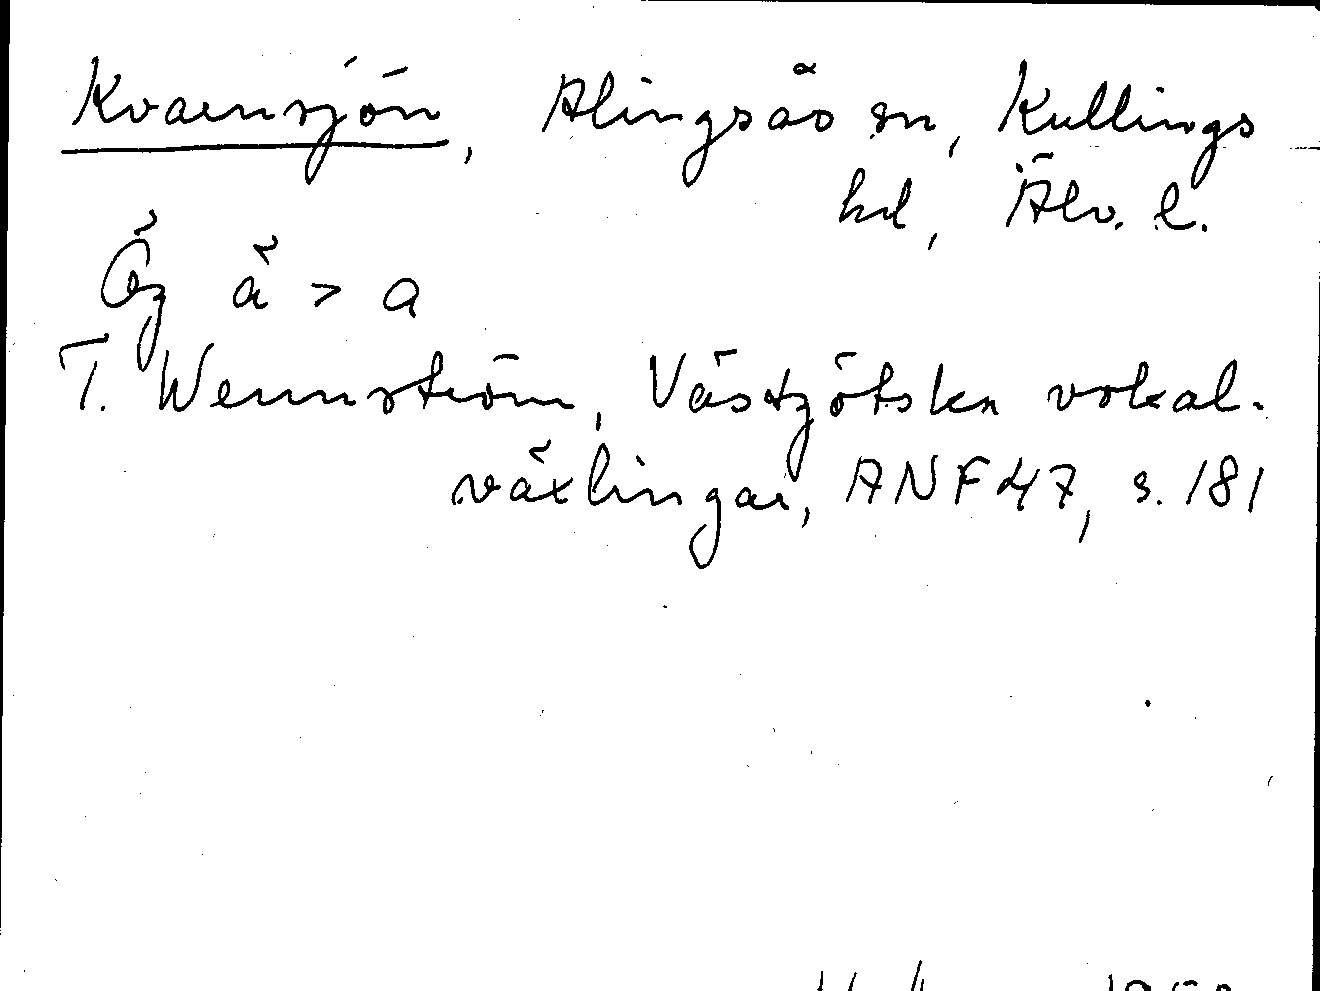 Kvarnsjön, Alingsås sn, Kullings
hd, Älv. l.
Ög ä > a
T. Wennström, Västgötska vokal-
växlingar, ANF 47, s. 181